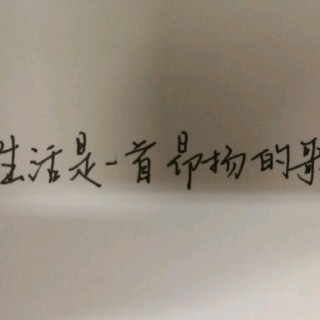 生活是一首昂扬的歌